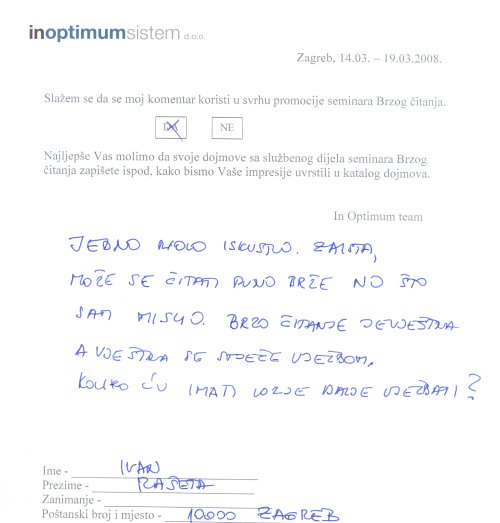 inoptimumsistem d.o.o.
Zagreb, 14.03. – 19.03.2008.
Slažem se da se moj komentar koristi u svrhu promocije seminara Brzog čitanja.
DA NE
Najljepše Vas molimo da svoje dojmove sa službenog dijela seminara Brzog
čitanja zapišete ispod, kako bismo Vaše impresije uvrstili u katalog dojmova.
In Optimum team
JEDNO NOVO ISKUSTVO. ZAISTA,
MOŽE SE ČITATI PUNO BRŽE NO ŠTO
SAM MISLIO. BRZO ČITANJE JE VJEŠTINA
A VJEŠTINA SE STJEČE VJEŽBOM.
KOLIKO ĆU IMATI VOLJE DALJE VJEŽBATI?
Ime - IVAN
Prezime - RAŠETA
Zanimanje -
Poštanski broj i mjesto - 10000 ZAGREB